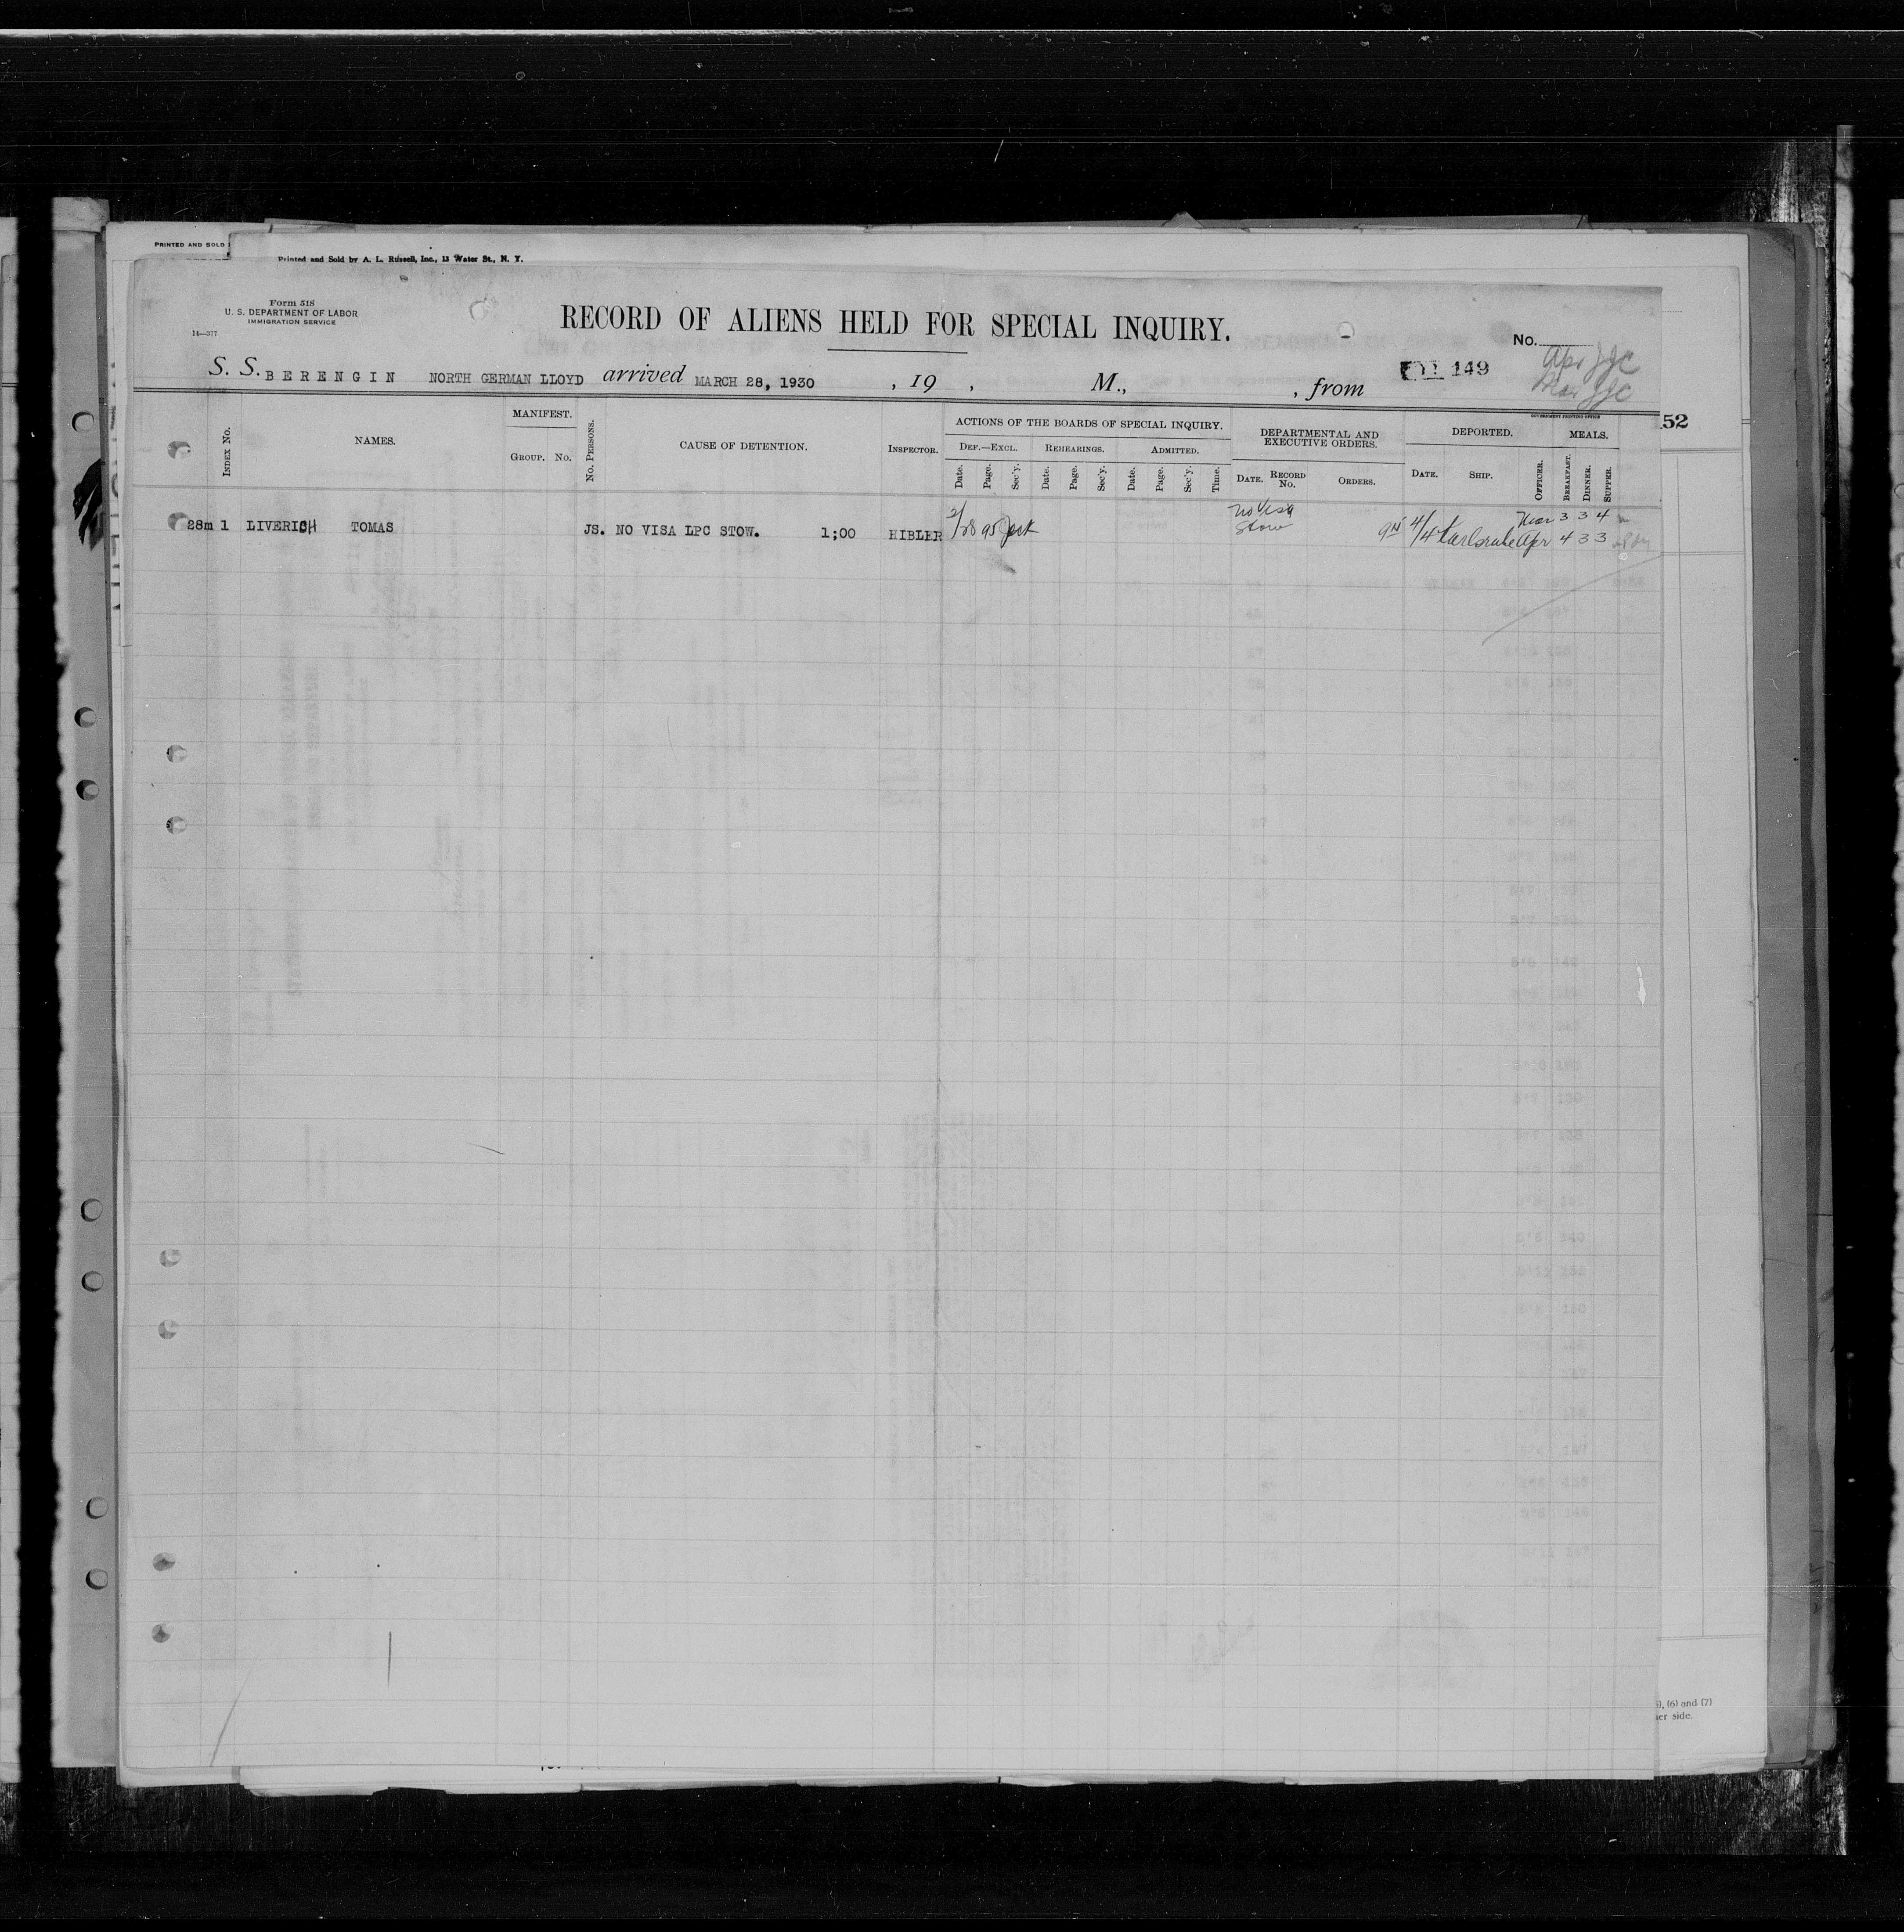 PRINTED AND SOLD
Printed and Sold by A. L. Russell, Inc., 13 Water St., N. Y.
Form 518
U. S. DEPARTMENT OF LABOR
IMMIGRATION SERVICE
14—377
RECORD OF ALIENS HELD FOR SPECIAL INQUIRY.
No.
Apr JJC
Mar JJC
S. S. BERENGIN NORTH GERMAN LLOYD arrived MARCH 28, 1930 , 19 , M., , from
149
GOVERNMENT PRINTING OFFICE
52
INDEX No.
NAMES.
MANIFEST.
GROUP. No.
No. PERSONS.
CAUSE OF DETENTION.
INSPECTOR.
ACTIONS OF THE BOARDS OF SPECIAL INQUIRY.
DEF.—EXCL. REHEARINGS. ADMITTED.
Date. Page. Sec'y. Date. Page. Sec'y. Date. Page. Sec'y. Time.
DEPARTMENTAL AND
EXECUTIVE ORDERS.
DATE. RECORD No. ORDERS.
DEPORTED.
DATE. SHIP. OFFICER.
MEALS.
BREAKFAST. DINNER. SUPPER.
no visa Mar 3 3 4
28m 1 LIVERICH TOMAS JS. NO VISA LPC STOW. 1;00 HIBLER Stow 4/4 Karlsruhe Apr 4 3 3
, (6) and (7)
her side.